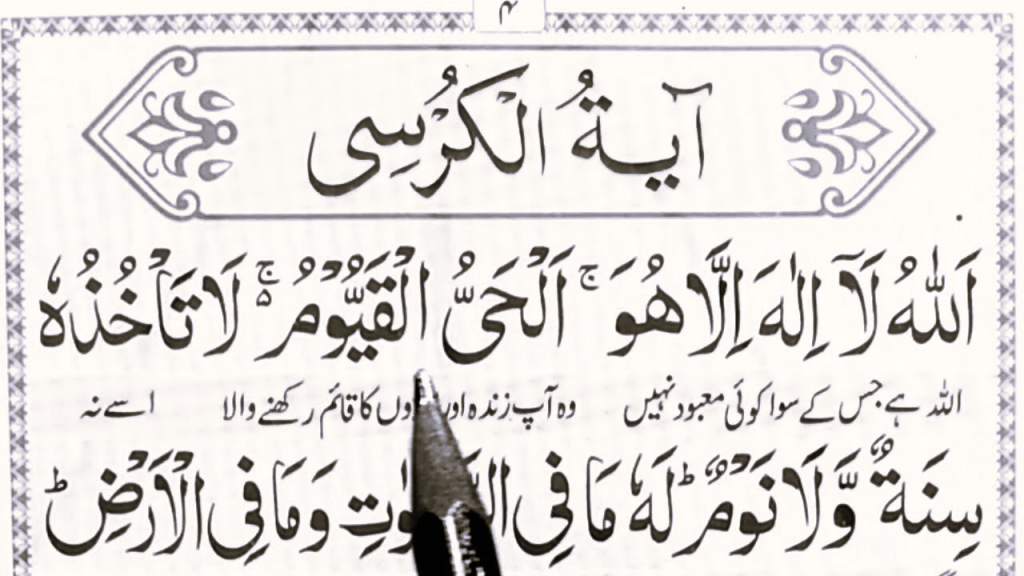 ۴
آيةُ الْكُرْسِى
اَللّٰهُ لَآ اِلٰهَ اِلَّا هُوَ ۚ اَلْحَىُّ الْقَيُّوْمُ ۚ۬ لَا تَاْخُذُهٗ
اللہ ہے جس کے سوا کوئی معبود نہیں وہ آپ زندہ اور کا قائم رکھنے والا اسے نہ
سِنَةٌ وَّلَا نَوْمٌ ؕ لَهٗ مَا فِى وَمَا فِى الْاَرْضِ ؕ